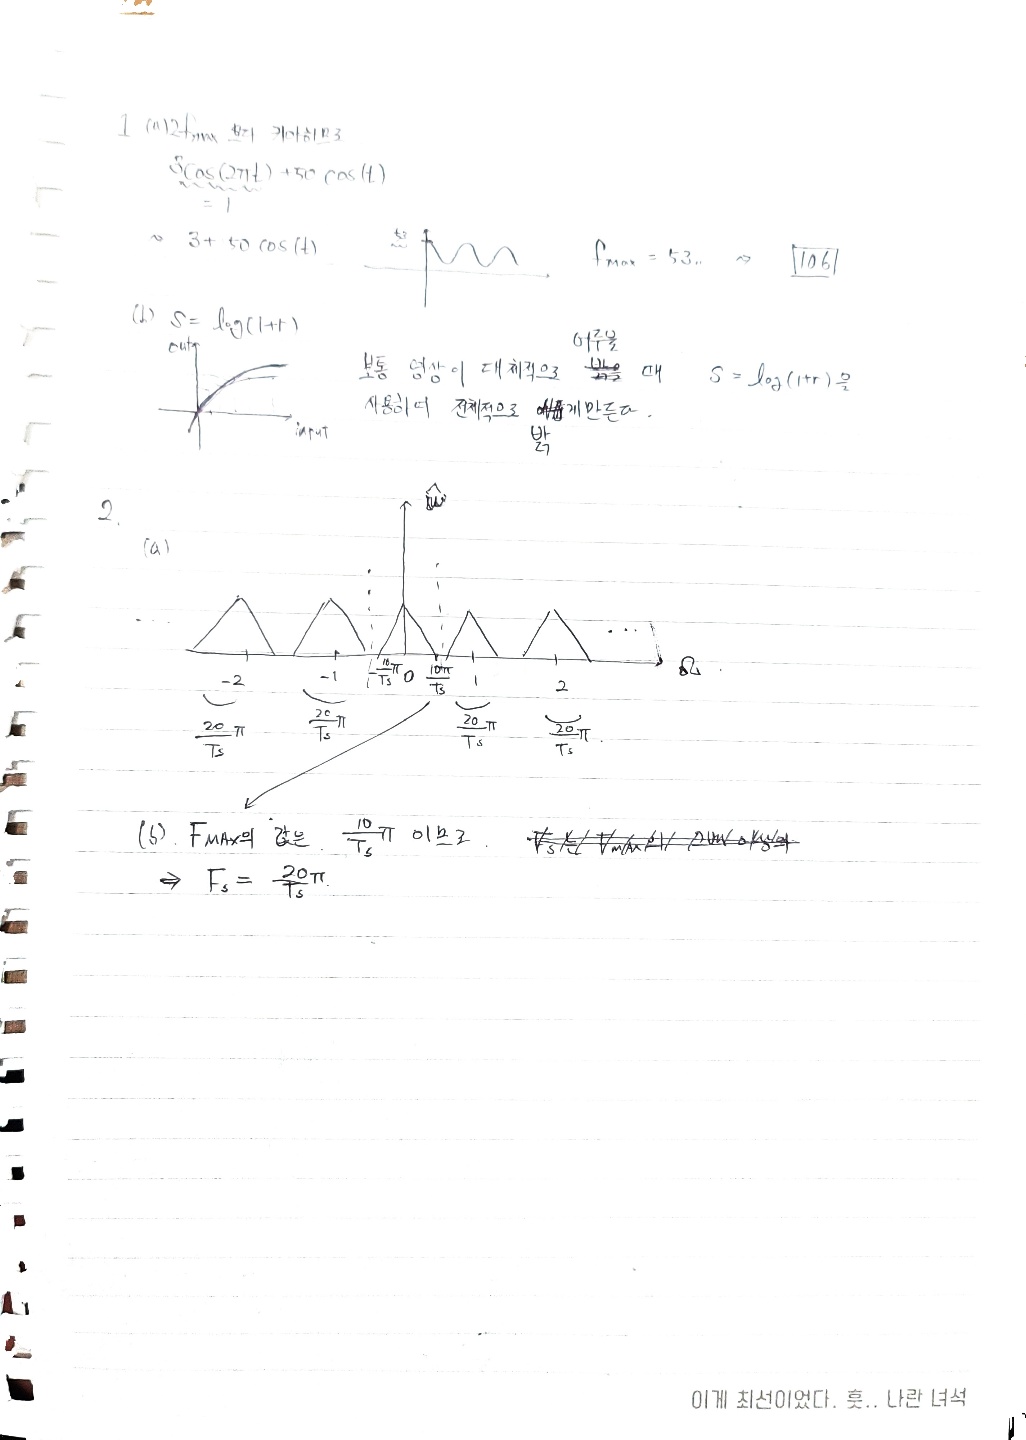 1 (a) 2fmax 보다 커야하므로
3cos(2πt) + 50 cos(t)
= 1
~ 3 + 50 cos(t)
53
fmax = 53.. ~> 106
(b) S = log(1+r)
output
input
어두울
보통 영상이 대체적으로 때 S = log(1+r)을
사용하여 전체적으로 게 만든다.
밝
2.
(a)
... -2 -1 -10/Ts π 0 10π/Ts 1 2 ... Ω
20/Ts π 20/Ts π 20/Ts π 20/Ts π.
(b). FMAX의 값은 10/Ts π 이므로.
⇒ Fs = 20π/Ts
이게 최선이었다. 훗.. 나란 녀석